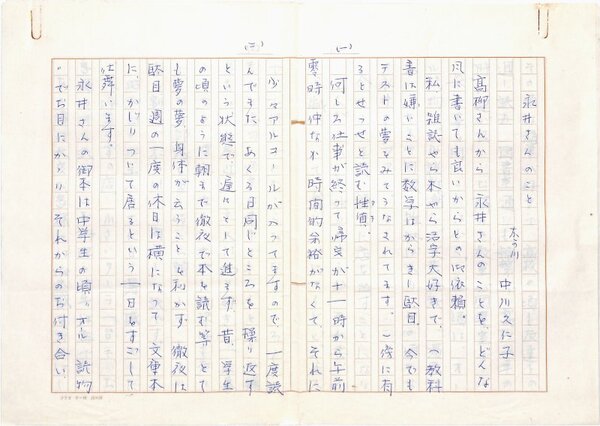 (一)
永井さんのこと
本の川 中川久仁子
高柳さんから、永井さんのことを、どんな
風に書いても良いからとの御依頼。
私、雑誌やら本やら活字大好きで、(教科
書は嫌いことに数学はからきし駄目。今でも
テストの夢をみてうなされてます。)家に有
るとせっせと読む性質。
何しろ仕事が終って帰宅が十一時から午前
零時、仲々時間的余裕がなくて、それに
(二)
少々アルコールが入ってますので、一度読
んでもまた、あくる日同じところを繰り返す
という状態で、遅々として進まず。昔、学生
の頃のように朝まで徹夜で本を読む等、とて
も夢の夢、身体が云うことを利かず徹夜は
駄目。週の一度の休日は横になって、文庫本
に、かじりついて居るという一日をすごして
仕舞います。
永井さんの御本は中学生の頃、オール読物
でお目にかゝりそれからのお付き合い